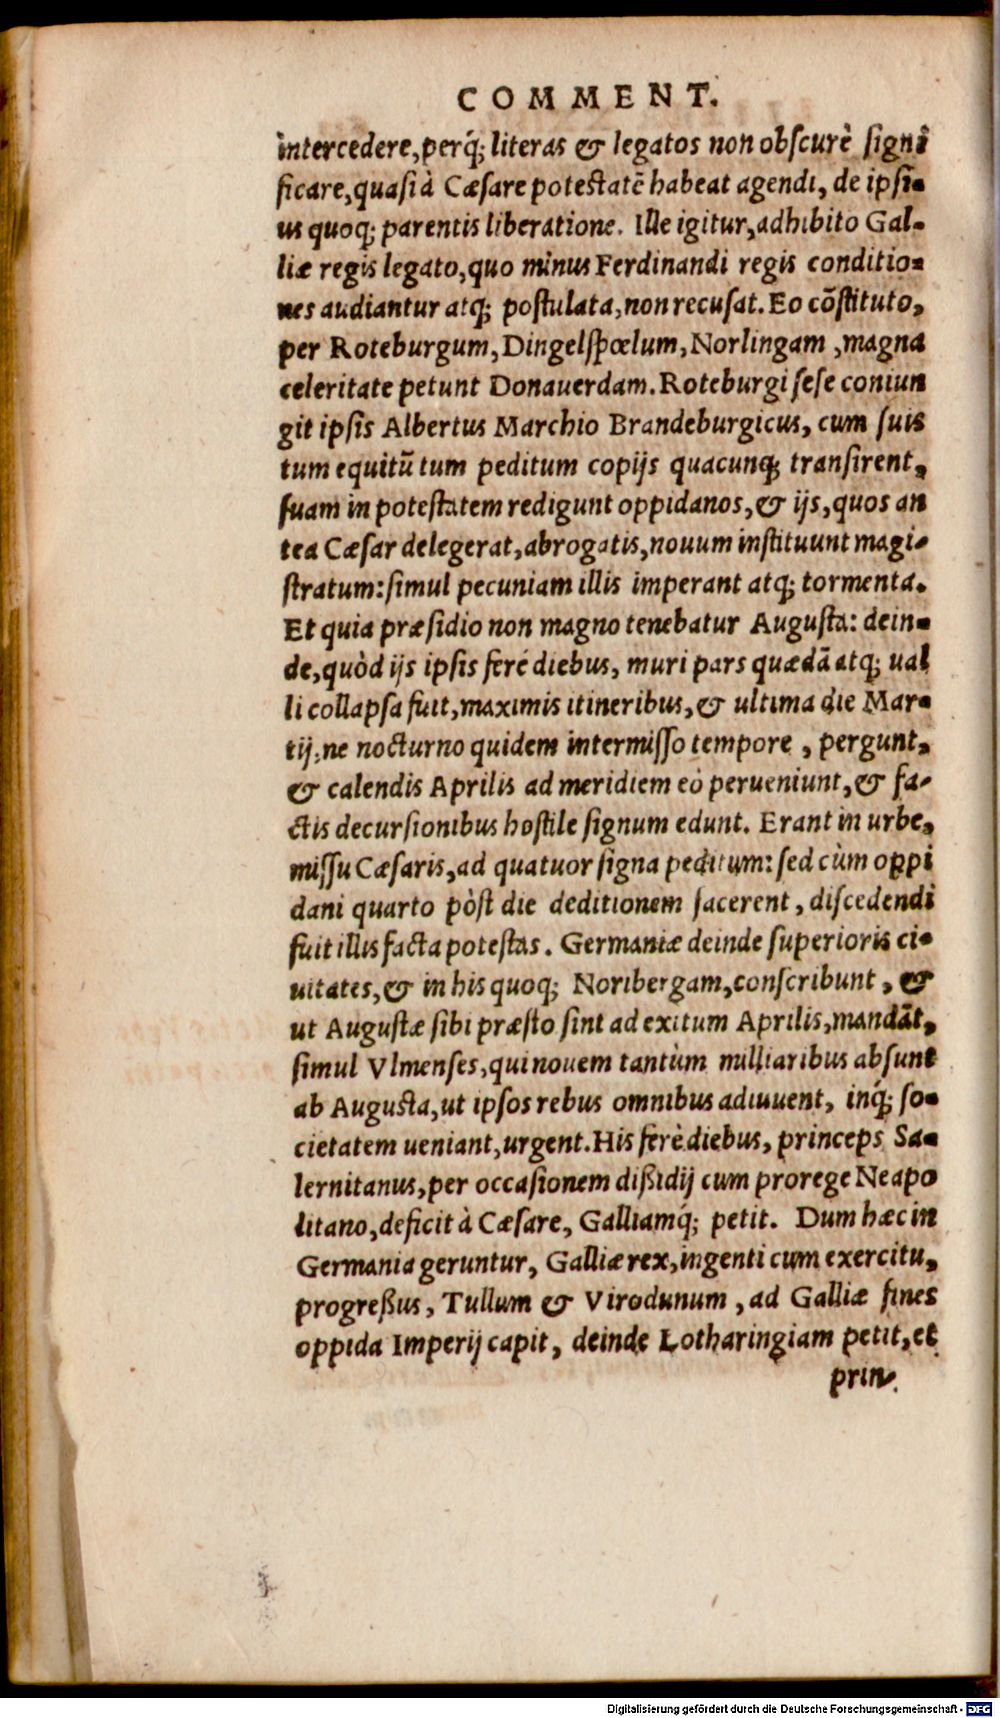 COMMENT.
intercedere, perq́; literas & legatos non obscurè signi
ficare, quasi à Cæsare potestatē habeat agendi, de ipsi-
us quoq; parentis liberatione. Ille igitur, adhibito Gal-
liæ regis legato, quo minus Ferdinandi regis conditio-
nes audiantur atq; postulata, non recusat. Eo cōstituto,
per Roteburgum, Dingelspœlum, Norlingam, magna
celeritate petunt Donauerdam. Roteburgi sese coniun
git ipsis Albertus Marchio Brandeburgicus, cum suis
tum equitū tum peditum copijs quacunq; transirent,
suam in potestatem redigunt oppidanos, & ijs, quos an
tea Cæsar delegerat, abrogatis, nouum instituunt magi-
stratum: simul pecuniam illis imperant atq; tormenta.
Et quia præsidio non magno tenebatur Augusta: dein-
de, quòd ijs ipsis ferè diebus, muri pars quædā atq; ual
li collapsa fuit, maximis itineribus, & ultima die Mar-
tij, ne nocturno quidem intermisso tempore, pergunt,
& calendis Aprilis ad meridiem eò perueniunt, & fa-
ctis decursionibus hostile signum edunt. Erant in urbe,
missu Cæsaris, ad quatuor signa peditum: sed cùm oppi
dani quarto pòst die deditionem facerent, discedendi
fuit illis facta potestas. Germaniæ deinde superioris ci-
uitates, & in his quoq; Noribergam, conscribunt, &
ut Augustæ sibi præsto sint ad exitum Aprilis, mandāt,
simul Vlmenses, qui nouem tantùm milliaribus absunt
ab Augusta, ut ipsos rebus omnibus adiuuent, inq́; so-
cietatem ueniant, urgent. His ferè diebus, princeps Sa-
lernitanus, per occasionem dißidij cum prorege Neapo
litano, deficit à Cæsare, Galliamq́; petit. Dum hæc in
Germania geruntur, Galliæ rex, ingenti cum exercitu,
progreßus, Tullum & Virodunum, ad Galliæ fines
oppida Imperij capit, deinde Lotharingiam petit, et
prin-
Digitalisierung gefördert durch die Deutsche Forschungsgemeinschaft - DFG